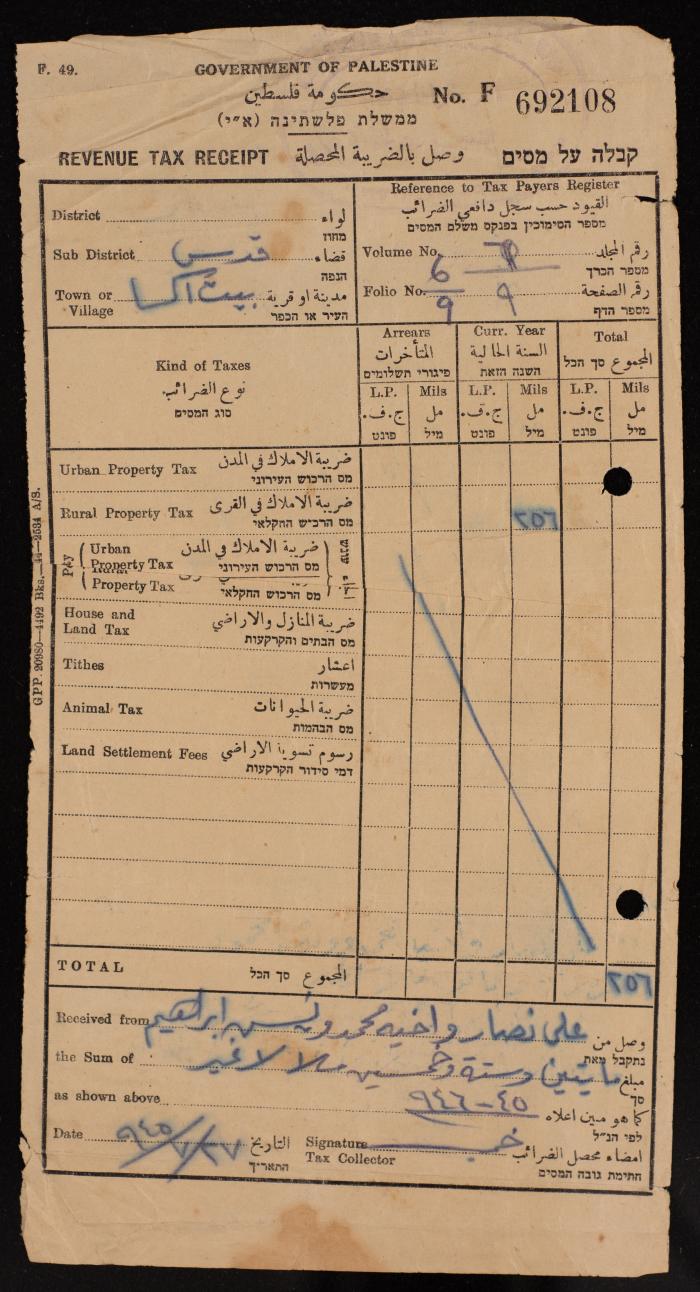 F. 49.
GOVERNMENT OF PALESTINE
حكومة فلسطين
ממשלת פלשתינה (א״י)
No. F 692108
REVENUE TAX RECEIPT وصل بالضريبة المحصلة קבלה על מסים
District لواء
מחוז
Sub District قدس قضاء
הנפה
Town or Village بيت اكسا مدينة او قرية
העיר או הכפר
Reference to Tax Payers Register
القيود حسب سجل دافعي الضرائب
מספר הסימוכין בפנקס משלם המסים
Volume No. رقم المجلد
מספר הכרך
Folio No. 6/9 ٩ رقم الصفحة
מספר הדף
Kind of Taxes
نوع الضرائب
סוג המסים
Arrears
المتأخرات
פיגורי תשלומים
Curr. Year
السنة الحالية
השנה הזאת
Total
المجموع סך הכל
L.P. Mils L.P. Mils L.P. Mils
ج.ف. مل ج.ف. مل ج.ف. مل
פונט מיל פונט מיל פונט מיל
Urban Property Tax ضريبة الاملاك في المدن
מס הרכוש העירוני
Rural Property Tax ضريبة الاملاك في القرى ٢٥٦
מס הרכוש החקלאי
Urban Property Tax ضريبة الاملاك في المدن
מס הרכוש העירוני
Property Tax
מס הרכוש החקלאי
House and Land Tax ضريبة المنازل والاراضي
מס הבתים והקרקעות
Tithes اعشار
מעשרות
Animal Tax ضريبة الحيوانات
מס הבהמות
Land Settlement Fees رسوم تسوية الاراضي
דמי סידור הקרקעות
TOTAL المجموع סך הכל ٢٥٦
Received from علي نصار واخيه محمد ابراهيم وصل من
נתקבל מאת
the Sum of مايتين وستة وخمسين ملا لا غير مبلغ
סך
as shown above ٤٥-٩٤٦ كما هو مبين اعلاه
לפי הנ״ל
Date ٢٧/٧/٩٤٥ التاريخ
התאריך
Signature Tax Collector امضاء محصل الضرائب
חתימת גובה המסים
GPP. 20980—4492 Bks.—44—2534 A/S.